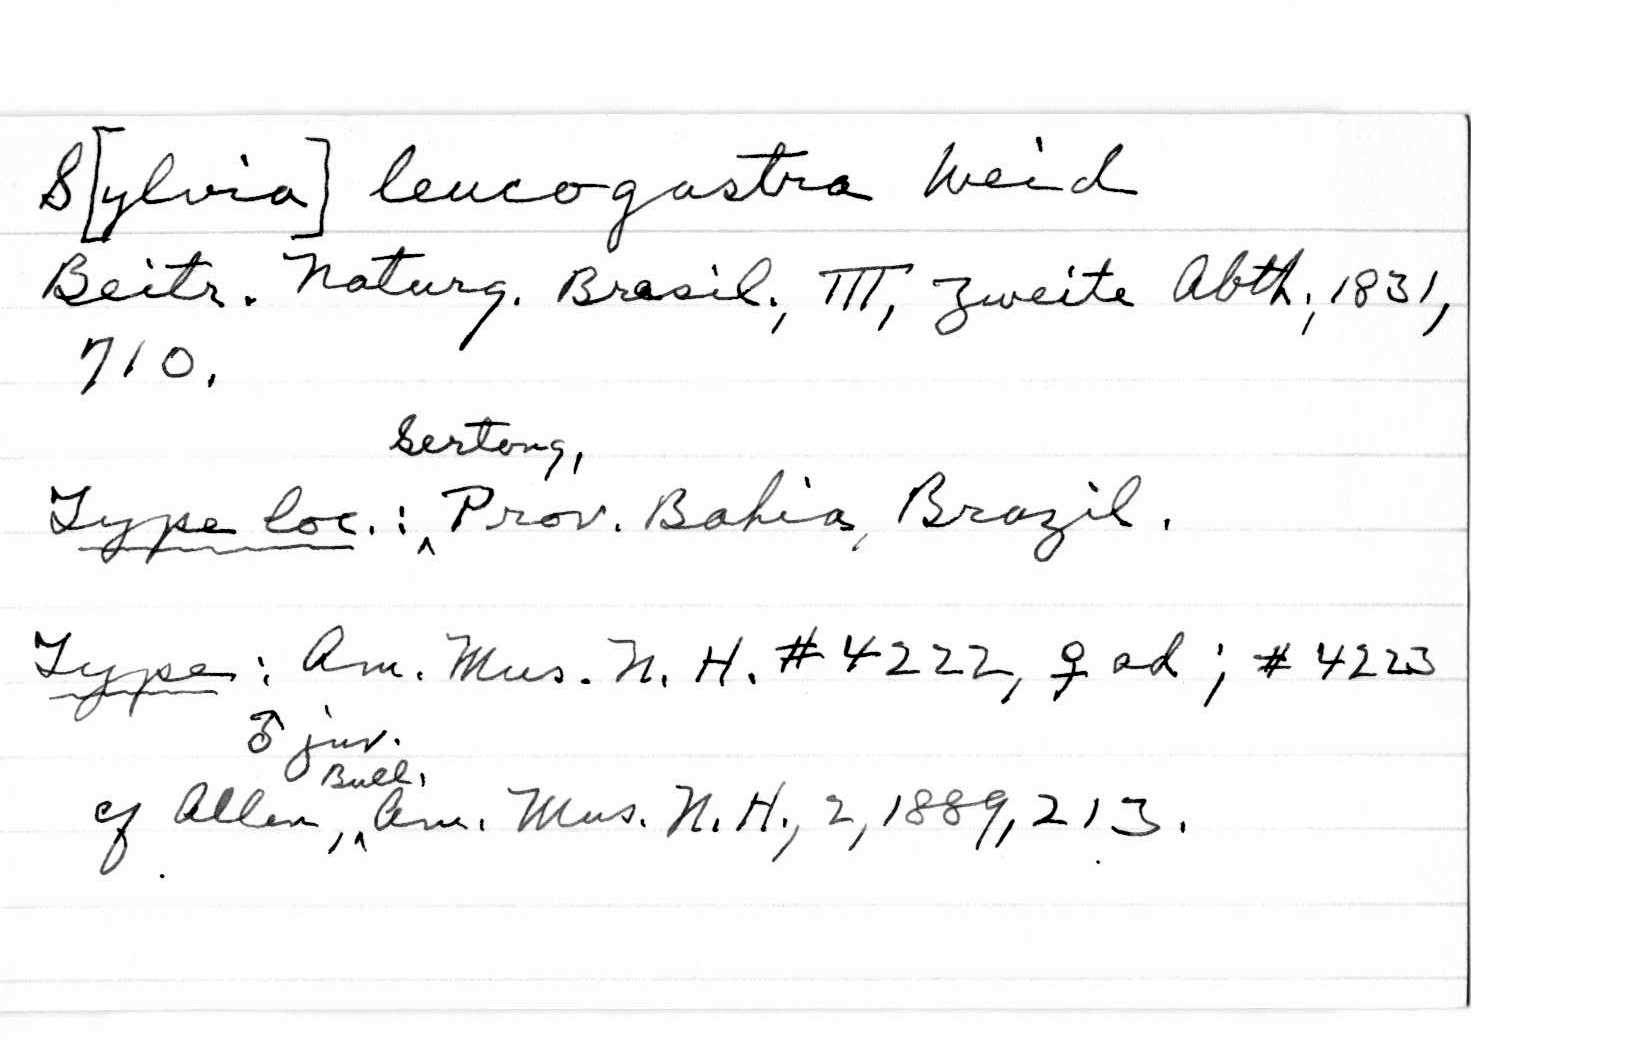 S[ylvia] leucogastra Weid
Beitr. Naturg. Brasil., III, Zweite Abth., 1831,
710.
Sertong,
Type loc.: ‸ Prov. Bahia, Brazil.
Type: Am. Mus. N. H. #4222, ♀ ad; #4223
♂ juv.
Bull.
cf Allen, ‸ Am. Mus. N. H., 2, 1889, 213.